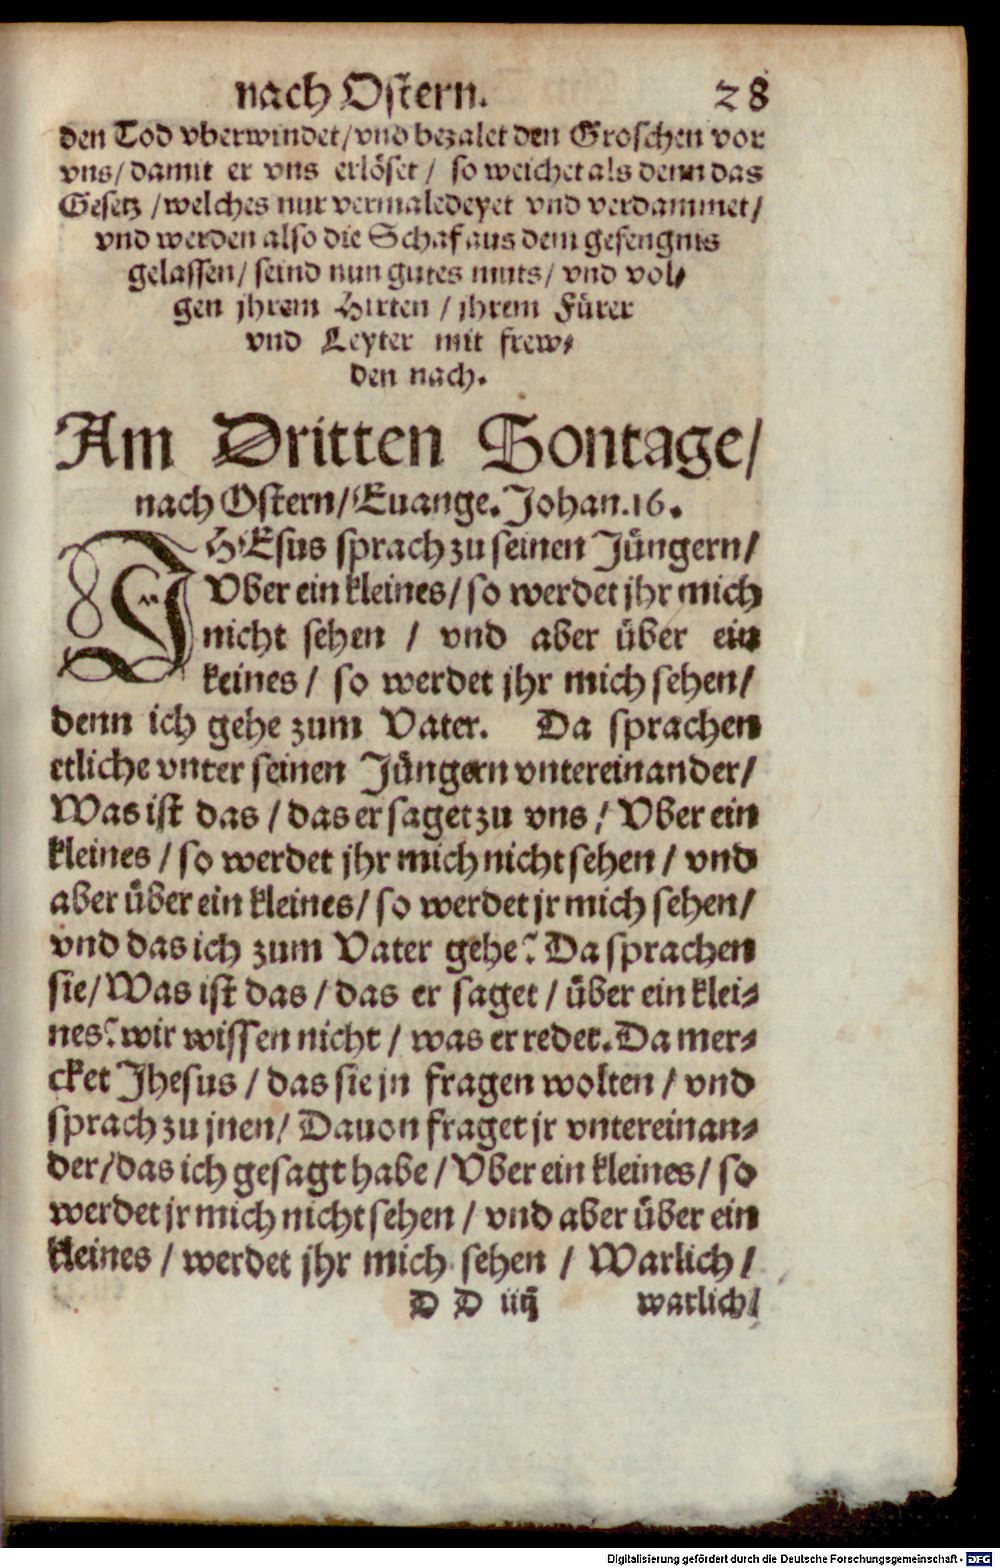 nach Ostern. 28
den Tod vberwindet/vnd bezalet den Groschen vor
vns/damit er vns erlöset / so weichet als denn das
Gesetz /welches nur vermaledeyet vnd verdammet/
vnd werden also die Schaf aus dem gefengnis
gelassen/ seind nun gutes muts/ vnd vol⸗
gen jhrem Hirten / jhrem Fürer
vnd Leyter mit frew⸗
den nach.
Am Dritten Sontage/
nach Ostern/Euange. Johan. 16.
JHEsus sprach zu seinen Jüngern/
Vber ein kleines/ so werdet jhr mich
nicht sehen / vnd aber über ein
keines/ so werdet jhr mich sehen/
denn ich gehe zum Vater. Da sprachen
etliche vnter seinen Jüngern vntereinander/
Was ist das / das er saget zu vns/ Vber ein
kleines / so werdet jhr mich nicht sehen / vnd
aber über ein kleines/ so werdet jr mich sehen/
vnd das ich zum Vater gehe? Da sprachen
sie/ Was ist das / das er saget / über ein klei⸗
nes? wir wissen nicht / was er redet. Da mer⸗
cket Jhesus / das sie jn fragen wolten / vnd
sprach zu jnen/ Dauon fraget jr vntereinan⸗
der/das ich gesagt habe / Vber ein kleines/ so
werdet jr mich nicht sehen / vnd aber über ein
kleines / werdet jhr mich sehen / Warlich /
D D iiij warlich/
Digitalisierung gefördert durch die Deutsche Forschungsgemeinschaft - DFG